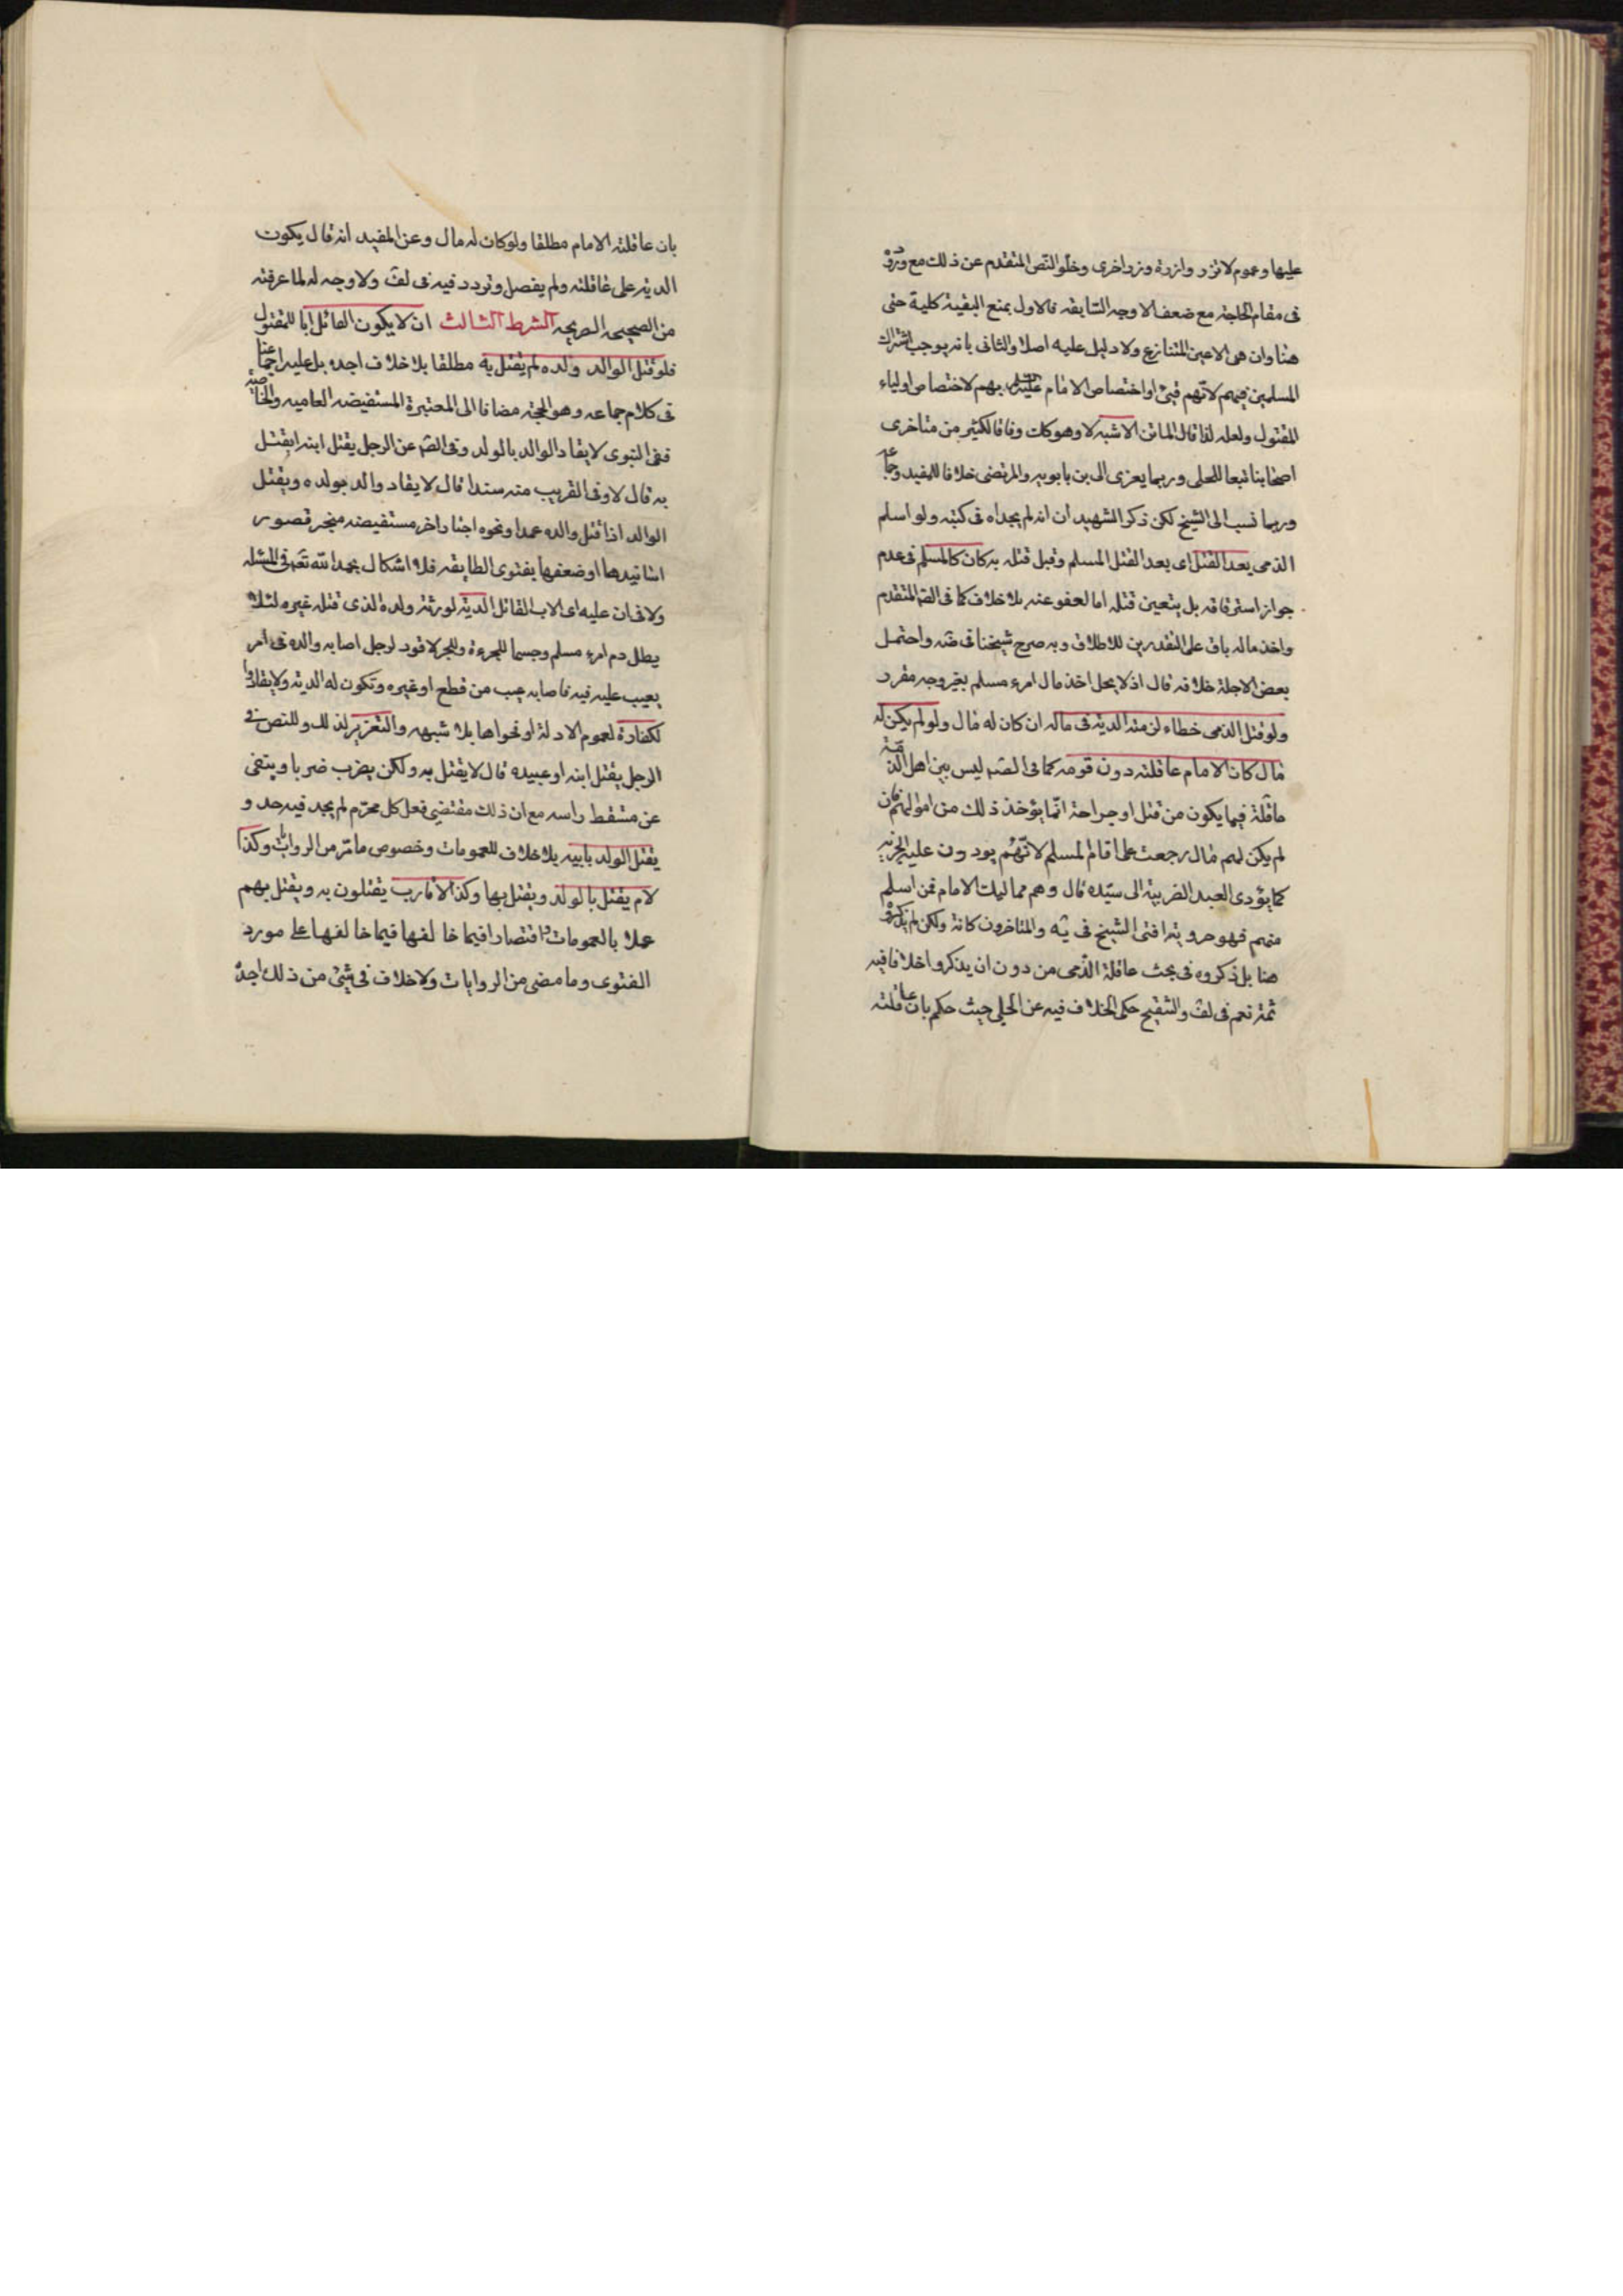 عليها وعموم لا تزر وازرة وزر اخرى وخلو النص المتقدم عن ذلك مع وروده
فى مقام الحاجة مع ضعف الاوجه السابقه فالاول بمنع البقية كلية حتى
هنا وان هى الا عين المتنازع ولا دليل عليه اصلا والثانى بانه يوجب اشتراك
المسلمين فيهم لانهم فيئ او اختصاص الامام عليه السلم بهم لاختصاص اولياء
المقتول ولعله لذا قال الماتن الاشبه لا وهو كك وفاقا لكثير من متاخرى
اصحابنا تبعا للحلى وربما يعزى الى بن بابويه والمرتضى خلافا للمفيد وجماعه
وربما نسب الى الشيخ لكن ذكر الشهيدان انه لم يجداه فى كتبه ولو اسلم
الذمى بعد القتل اى بعد القتل المسلم وقبل قتله به كان كالمسلم فى عدم
جواز استرقاقه بل يتعين قتله اما لعفو عنه بلا خلاف كما فى الصّ المتقدم
واخذ ماله باق على التقديرين للاطلاق وبه صرح شيخنا فى ضه واحتمل
بعض الاجلة خلافه قال اذ لا يحل اخذ مال امرء مسلم بغير وجه مقرر
ولو قتل الذمى خطاء لزمته الدية فى ماله ان كان له مال ولو لم يكن له
مال كان الامام عاقلته دون قومه كما فى الصّ ليس بين اهل الذمّة
معاقلة فيما يكون من قتل او جراحة انّما يؤخذ ذلك من اموالهم فان
لم يكن لهم مال رجعت على امام المسلم لانّهم يودون عليه الجزية
كما يؤدى العبد الضريبة الى سيّده قال وهم مماليك الامام فمن اسلم
منهم فهو حر وبه افتى الشيخ فى يه والمتاخرون كافة ولكن لم يذكروه
هنا بل ذكروه فى بحث عاقلة الذمى من دون ان يذكروا خلافا فيه
ثمة نعم فى لف والتنقيح حكى الخلاف فيه عن الحلى حيث حكم بان عاقلته
بان عاقلته الامام مطلقا ولو كان له مال وعن المفيد انه قال يكون
الدية على عاقلته ولم يفصل وتردد فيه فى لف ولا وجه له لما عرفته
من الصحيحه الصريحه الشرط الثالث ان لا يكون القاتل ابا للمقتول
فلو قتل الوالد ولده لم يقتل به مطلقا بلا خلاف اجده بل عليه اجماعنا
فى كلام جماعه وهو الحجة مضافا الى المعتبرة المستفيضه العاميه والخاصّه
ففى النبوى لا يقاد الوالد بالولد وفى الصّ عن الرجل يقتل ابنه ايقتل
به قال لا وفى القريب منه سندا قال لا يقاد والد بولده ويقتل
الوالد اذا قتل والده عمدا ونحوه اخبار اخر مستفيضه منجبر قصور
اسانيدها او ضعفها بفتوى الطايفه فلا اشكال بحمد اللّه تعم فى المسئله
ولا فى ان عليه اى الاب القاتل الدية لورثة ولده الذى قتله غيره لئلا
يطل دم امرء مسلم وحسما للجرءة وللخبر لا قود لرجل اصابه والده فى امر
يعيب عليه فيه فاصابه عيب من قطع او غيره وتكون له الدية ولا يقاد وا
لكفارة لعموم الادلة او فحواها بلا شبهه والتعزير لذلك وللنص فى
الرجل يقتل ابنه او عبيده قال لا يقتل به ولكن يضرب ضربا وينفى
عن مسقط راسه مع ان ذلك مقتضى فعل كل محرّم لم يجد فيه حد و
يقتل الولد بابيه بلا خلاف للعمومات وخصوص ما مرّ من الروايات وكذا
لام يقتل بالولد ويقتل بها وكذا الاقارب يقتلون به ويقتل بهم
عملا بالعمومات اقتصارا فيما خالفها فيما خالفها على مورد
الفتوى وما مضى من الروايات ولا خلاف فى شئ من ذلك اجده